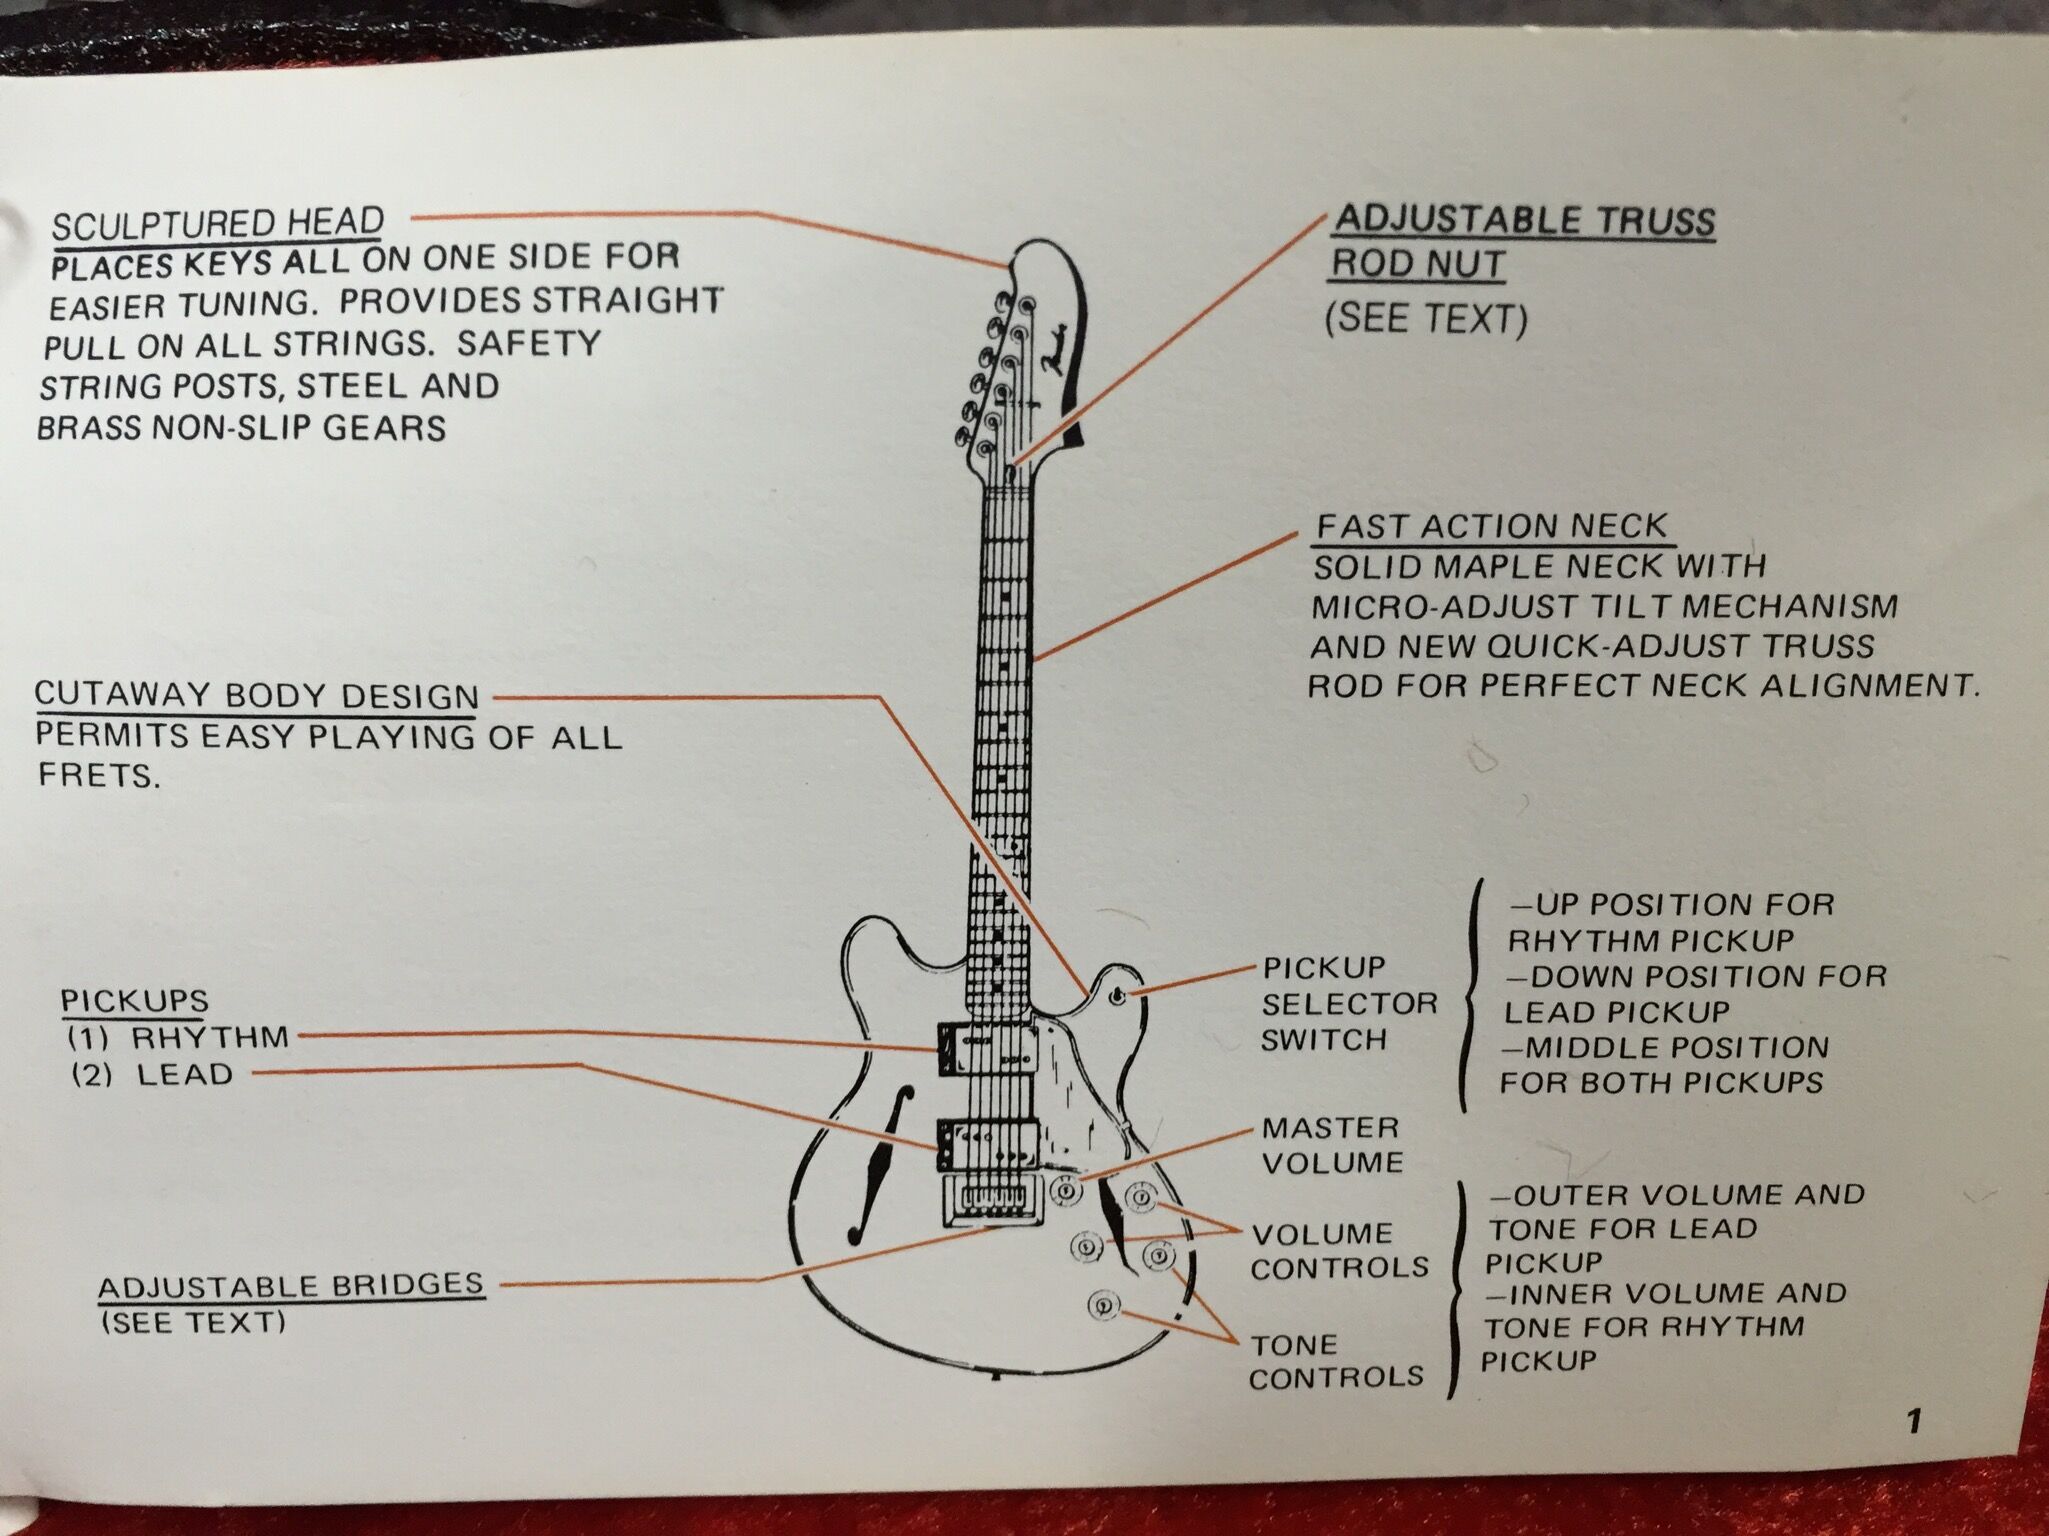 SCULPTURED HEAD
PLACES KEYS ALL ON ONE SIDE FOR
EASIER TUNING. PROVIDES STRAIGHT
PULL ON ALL STRINGS. SAFETY
STRING POSTS, STEEL AND
BRASS NON-SLIP GEARS
ADJUSTABLE TRUSS
ROD NUT
(SEE TEXT)
Fender
FAST ACTION NECK
SOLID MAPLE NECK WITH
MICRO-ADJUST TILT MECHANISM
AND NEW QUICK-ADJUST TRUSS
ROD FOR PERFECT NECK ALIGNMENT.
CUTAWAY BODY DESIGN
PERMITS EASY PLAYING OF ALL
FRETS.
PICKUPS
(1) RHYTHM
(2) LEAD
ADJUSTABLE BRIDGES
(SEE TEXT)
PICKUP
SELECTOR
SWITCH
—UP POSITION FOR
RHYTHM PICKUP
—DOWN POSITION FOR
LEAD PICKUP
—MIDDLE POSITION
FOR BOTH PICKUPS
MASTER
VOLUME
VOLUME
CONTROLS
TONE
CONTROLS
—OUTER VOLUME AND
TONE FOR LEAD
PICKUP
—INNER VOLUME AND
TONE FOR RHYTHM
PICKUP
1